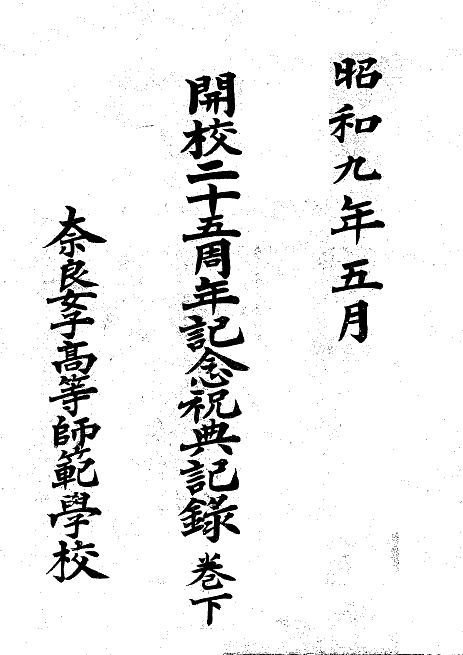 昭和九年五月
開校二十五周年記念祝典記錄 卷下
奈良女子高等師範學校